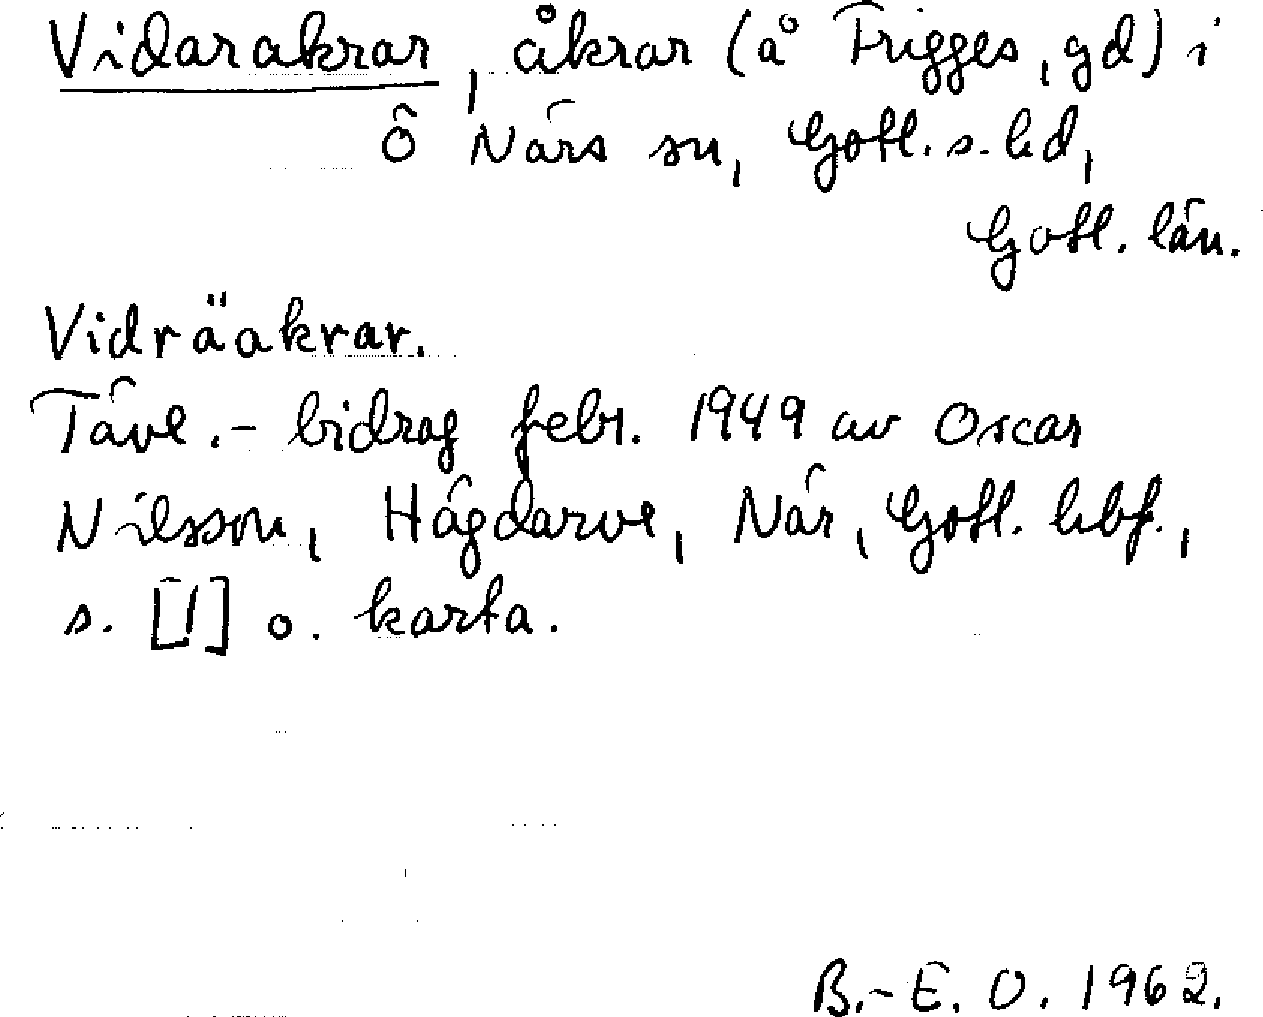 Vidarakrar, åkrar (å Frigges, gd) i
ô När​s sn, Gotl. s. hd,
Gotl. län.
Vidräakrar.
Tävl.- bidrag febr. 1949 av Oscar
Nilsson, Hägdarve, När, Gotl. hbf.,
s. [1] o. karta.
B.-E. O. 1962.